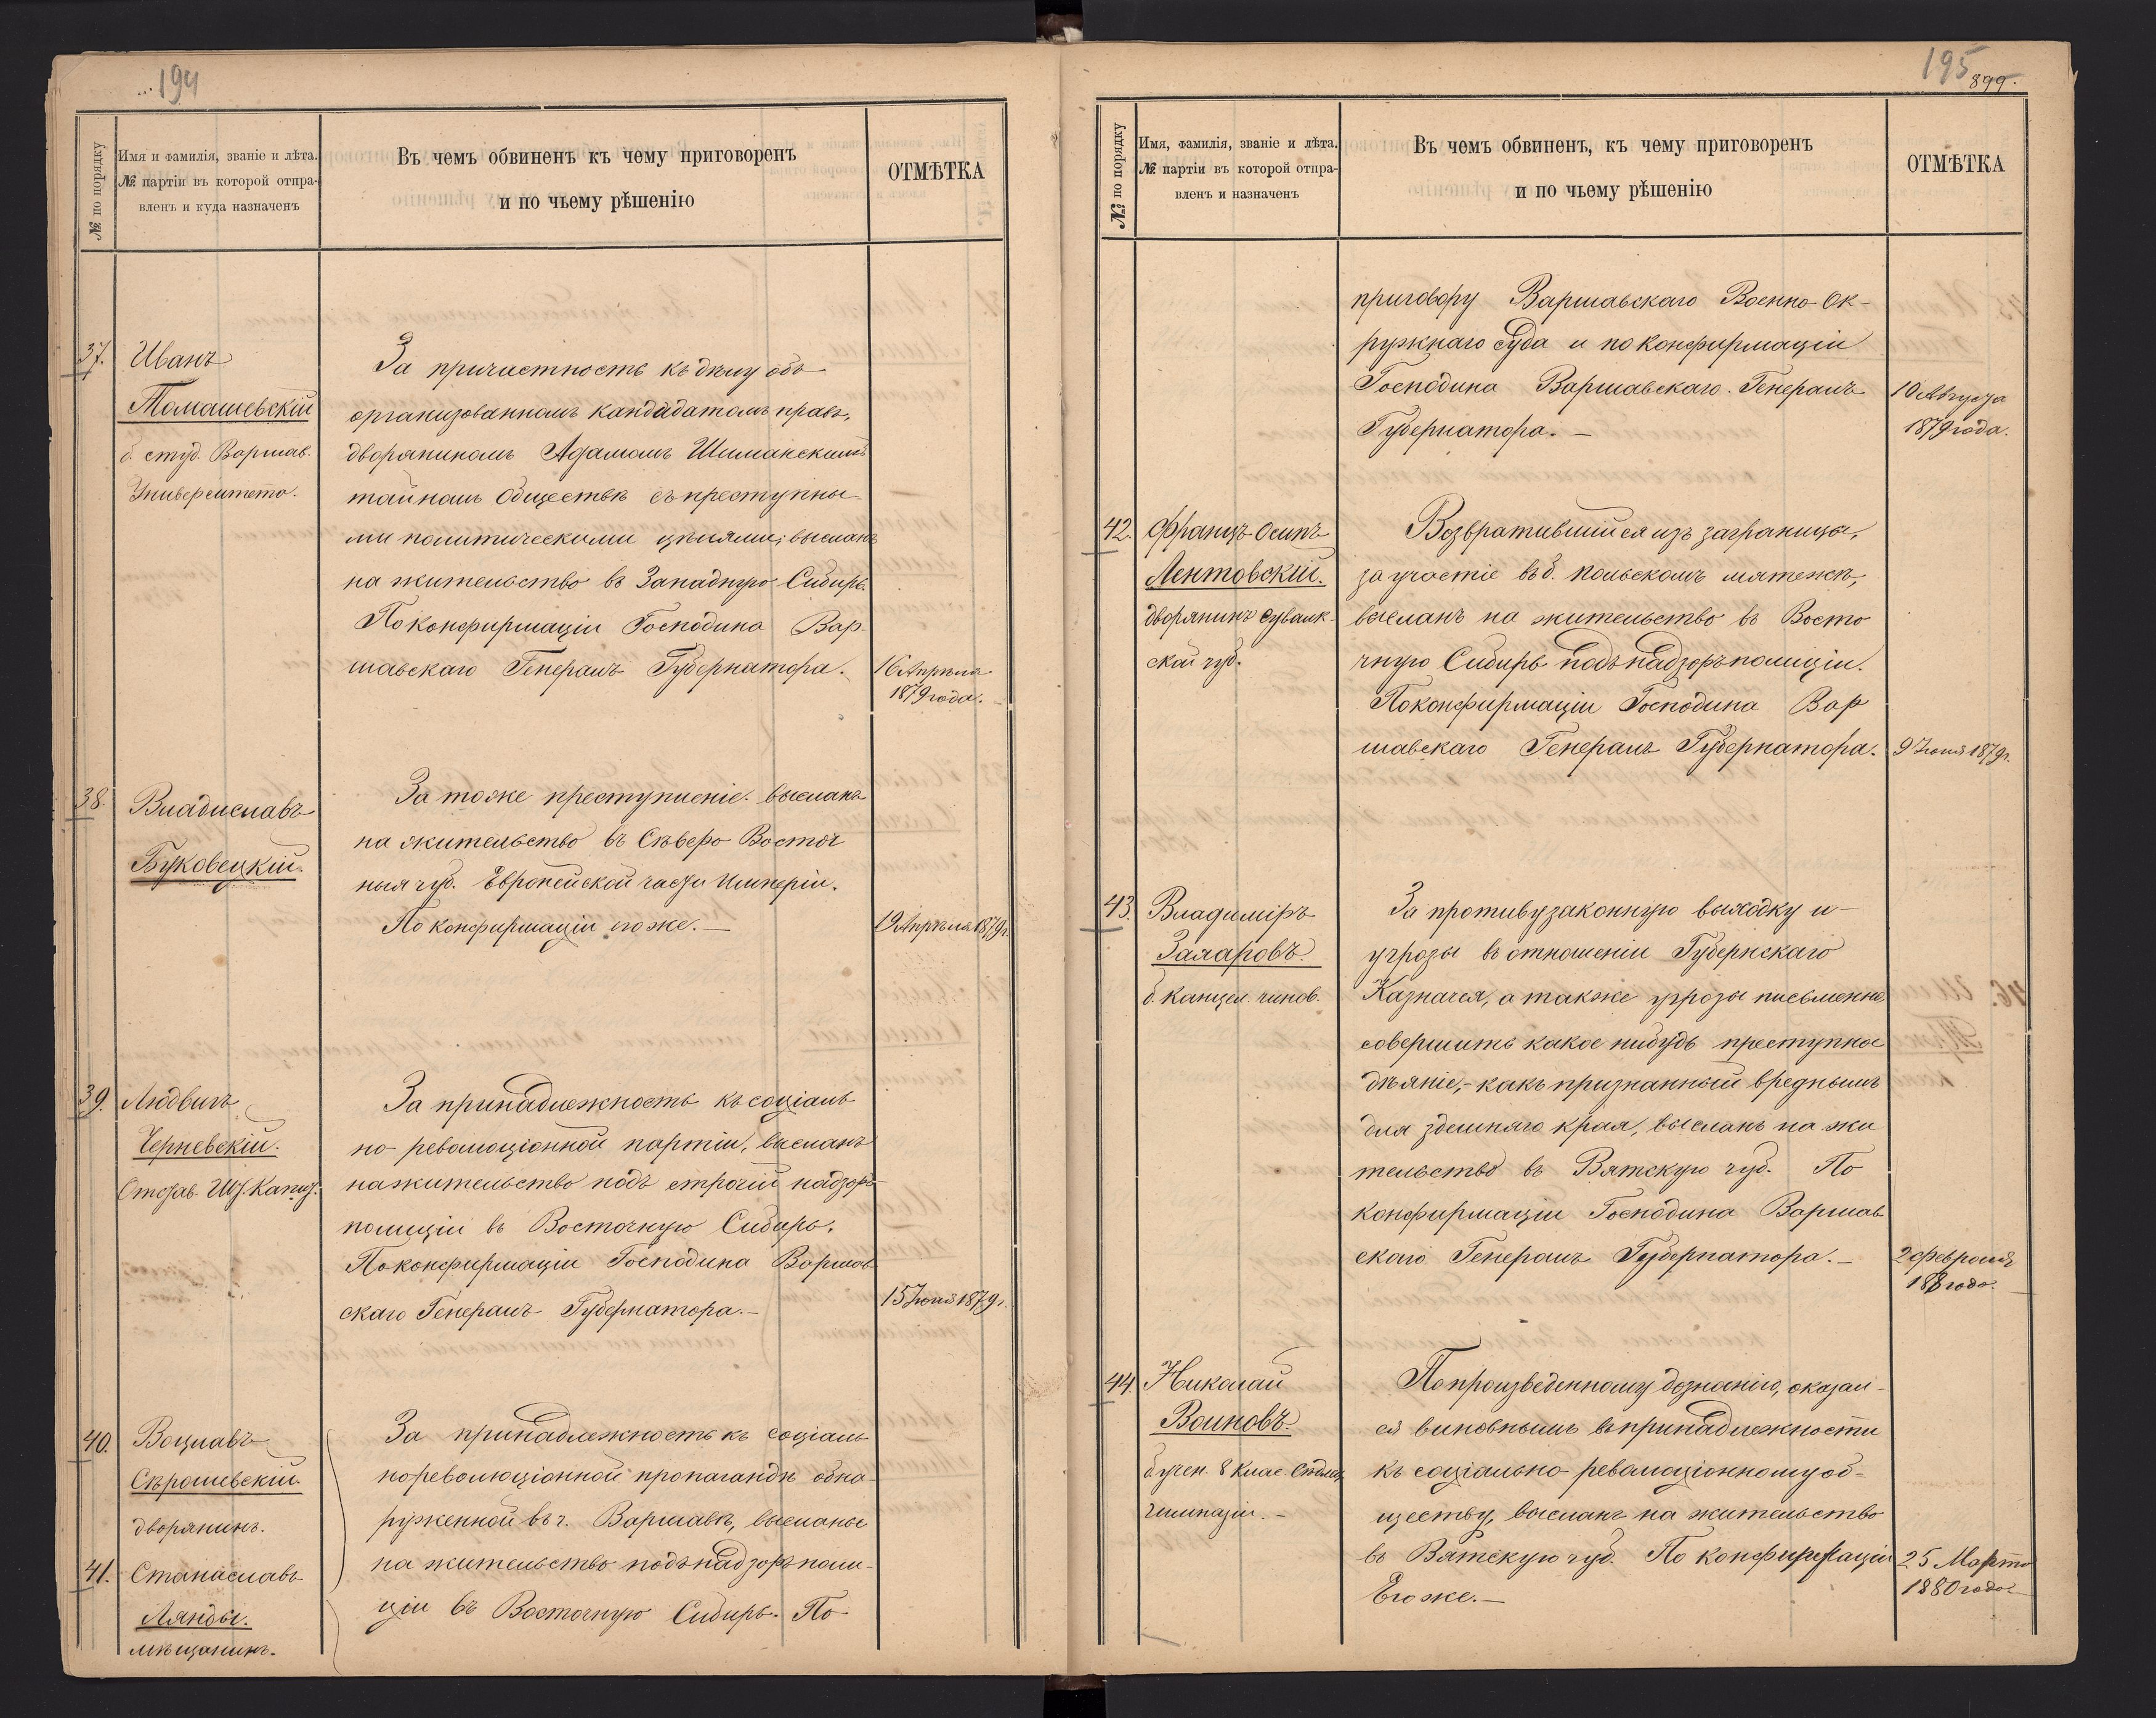 194
№ по порядку
Имя и фамилія, званіе и лѣта.
№ партіи въ которой отпра-
вленъ и куда назначенъ
Въ чемъ обвиненъ къ чему приговоренъ
и по чьему рѣшенію
ОТМѢТКА
37.
Иванъ
Томашевскій
б. студ. Варшав.
Университета.
За причастность къ дѣлу объ
организованномъ кандидатомъ правъ,
дворяниномъ Адамомъ Шиманскимъ
тайномъ Обществѣ съ преступны-
ми политическими цѣлями, высланъ
на жительство въ Западную Сибирь.
По конфирмаціи Господина Вар-
шавскаго Генералъ Губернатора.
16 Апрѣля
1879 года.
38.
Владиславъ
Буковецкій.
За тоже преступленіе высланъ
на жительство въ Сѣверо Восточ
ныя губ. Европейской части Имперіи.
По конфирмаціи его же. —
19 Апрѣля 1879 г.
39.
Людвигъ
Черневскій.
Отстав. Шт. Капит.
За принадлежность къ соціаль
но-революціонной партіи, высланъ
на жительство подъ строгій надзоръ
полиціи въ Восточную Сибирь.
По конфирмаціи Господина Варшав
скаго Генералъ Губернатора. —
15 Іюня 1879 г.
40.
Воцлавъ
Сѣрошевскій.
дворянинъ.
41.
Станиславъ
Ланды.
мѣщанинъ.
За принадлежность къ соціаль
но революціонной пропагандѣ обна-
руженной въ г. Варшавѣ, высланы
на жительство подъ надзоръ поли-
ціи въ Восточную Сибирь. По
195
899.
№ по порядку
Имя, фамилія, званіе и лѣта.
№ партіи въ которой отпра-
вленъ и назначенъ
Въ чемъ обвиненъ, къ чему приговоренъ
и по чьему рѣшенію
ОТМѢТКА
приговору Варшавскаго Военно-Ок-
ружнаго Суда и по конфирмаціи
Господина Варшавскаго Генералъ
Губернатора. —
10 Августа
1879 года.
42.
Францъ-Осипъ
Лентовскій.
дворянинъ Сувалк-
ской губ.
Возвратившійся изъ заграницы,
за участіе въ б. польскомъ мятежѣ,
высланъ на жительство въ Восто
чную Сибирь подъ надзоръ полиціи.
По конфирмаціи Господина Вар
шавскаго Генералъ Губернатора.
9 Іюня 1879 г.
43.
Владиміръ
Захаровъ.
б. канцел. чинов.
За противузаконную выходку и
угрозы въ отношеніи Губернскаго
Казначея, а также угрозы письменно,
совершить какое нибудь преступное
дѣяніе, - какъ признанный вреднымъ
для здешняго края, высланъ на жи
тельство въ Вятскую губ. По
конфирмаціи Господина Варшав
скаго Генералъ Губернатора. —
2 февраля
44.
Николай
Воиновъ.
б. учен. 8 клас.
гимназіи. -
По произведенному дознанію, оказал-
ся виновнымъ въ принадлежности
къ соціально-революціонному об-
ществу, высланъ на жительство
въ Вятскую губ. По конфирмаціи
Его же. —
25 Марта
1880 года